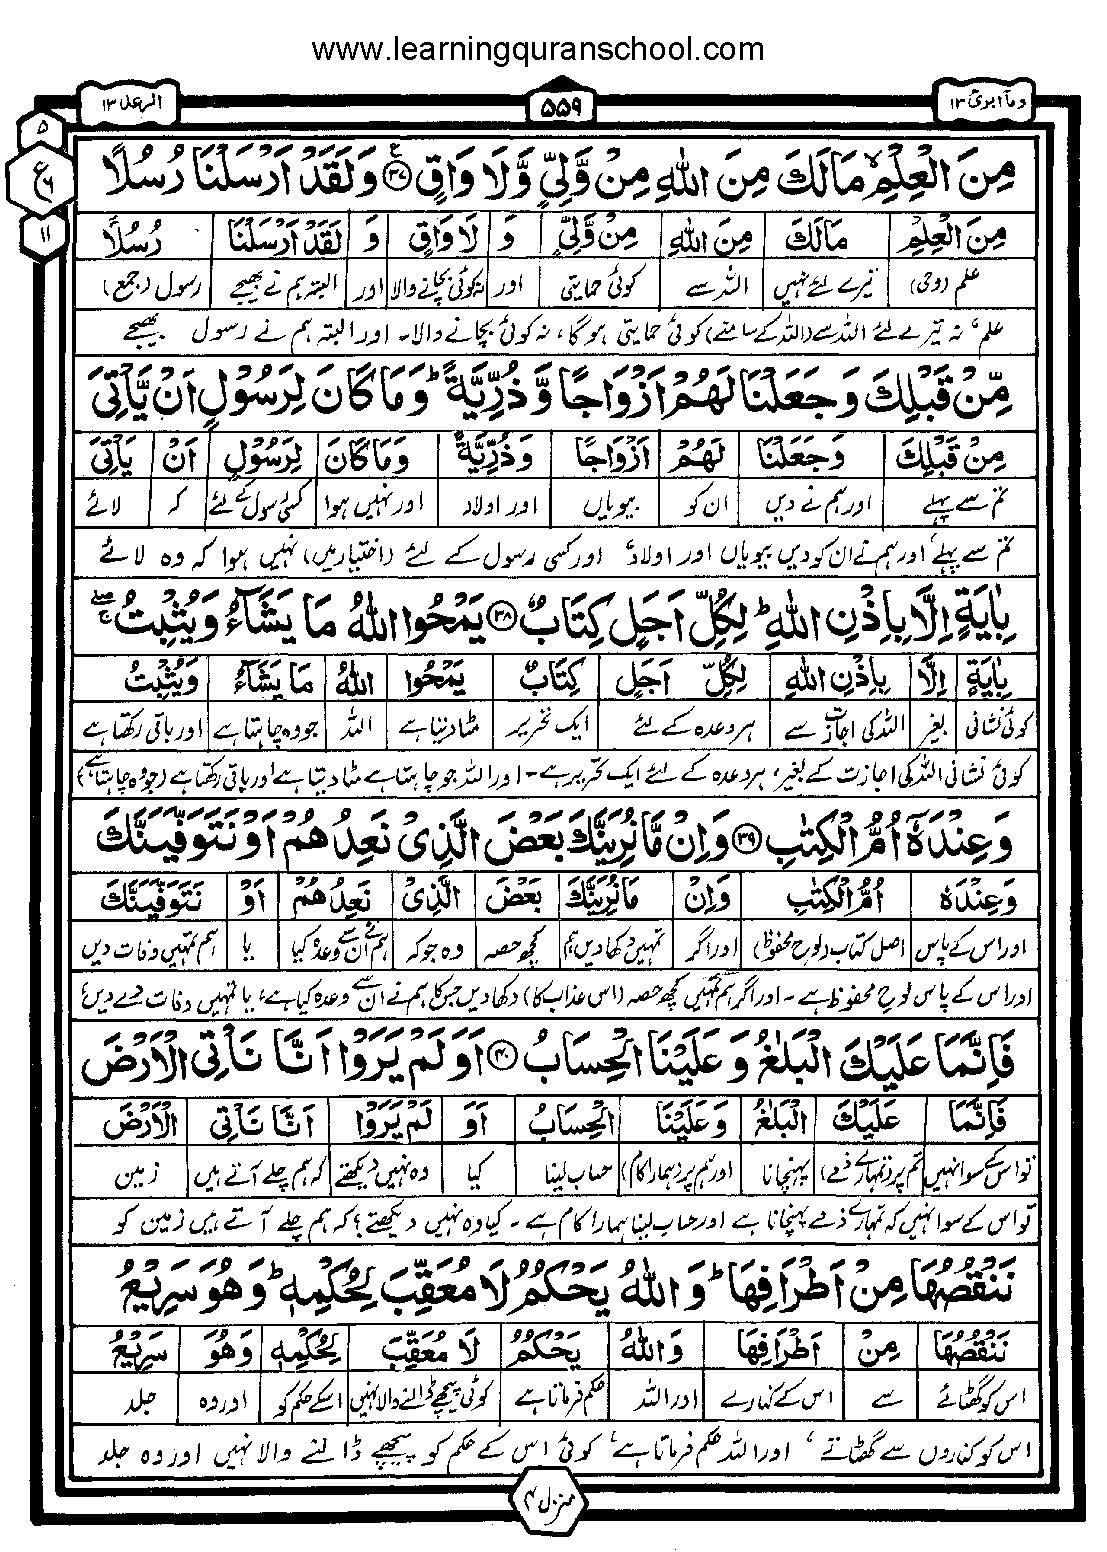 www.learningquranschool.com
وما ابرئ ۱۳
۵۵۹
الرعد ۱۳
۵
ع ۶
۱۱
مِنَ الْعِلْمِ ۙ مَا لَكَ مِنَ اللّٰهِ مِنْ وَّلِيٍّ وَّلَا وَاقٍ ۧ۳۷ وَلَقَدْ اَرْسَلْنَا رُسُلًا
مِنَ الْعِلْمِ مَا لَكَ مِنَ اللّٰهِ مِنْ وَّلِيٍّ وَ لَا وَاقٍ وَ لَقَدْ اَرْسَلْنَا رُسُلًا
علم (وحی) تیرے لئے نہیں اللہ سے کوئی حمایتی اور نہ کوئی بچانے والا اور البتہ ہم نے بھیجے رسول (جمع)
علم، نہ تیرے لئے اللہ سے (اللہ کے سامنے) کوئی حمایتی ہوگا، نہ کوئی بچانے والا۔ اور البتہ ہم نے رسول بھیجے
مِّنْ قَبْلِكَ وَجَعَلْنَا لَهُمْ اَزْوَاجًا وَّذُرِّيَّةً ؕ وَمَا كَانَ لِرَسُوْلٍ اَنْ يَّاْتِيَ
مِنْ قَبْلِكَ وَجَعَلْنَا لَهُمْ اَزْوَاجًا وَذُرِّيَّةً وَمَا كَانَ لِرَسُوْلٍ اَنْ يَاْتِيَ
تم سے پہلے اور ہم نے دیں ان کو بیویاں اور اولاد اور نہیں ہوا کسی رسول کے لئے کہ لائے
تم سے پہلے، اور ہم نے ان کو دیں بیویاں اور اولاد، اور کسی رسول کے لئے (اختیار میں) نہیں ہوا کہ وہ لائے
بِاٰيَةٍ اِلَّا بِاِذْنِ اللّٰهِ ؕ لِكُلِّ اَجَلٍ كِتَابٌ ۳۸ يَمْحُوا اللّٰهُ مَا يَشَآءُ وَيُثْبِتُ ۚۖ
بِاٰيَةٍ اِلَّا بِاِذْنِ اللّٰهِ لِكُلِّ اَجَلٍ كِتَابٌ يَمْحُوا اللّٰهُ مَا يَشَآءُ وَيُثْبِتُ
کوئی نشانی بغیر اللہ کی اجازت سے ہر وعدہ کے لئے ایک تحریر مٹا دیتا ہے اللہ جو وہ چاہتا ہے اور باقی رکھتا ہے
کوئی نشانی اللہ کی اجازت کے بغیر، ہر وعدہ کے لئے ایک تحریر ہے۔ اور اللہ جو چاہتا ہے مٹا دیتا ہے اور باقی رکھتا ہے (جو وہ چاہتا ہے)
وَعِنْدَهٗٓ اُمُّ الْكِتٰبِ ۳۹ وَاِنْ مَّا نُرِيَنَّكَ بَعْضَ الَّذِيْ نَعِدُهُمْ اَوْ نَتَوَفَّيَنَّكَ
وَعِنْدَهٗ اُمُّ الْكِتٰبِ وَاِنْ مَا نُرِيَنَّكَ بَعْضَ الَّذِيْ نَعِدُهُمْ اَوْ نَتَوَفَّيَنَّكَ
اور اس کے پاس اصل کتاب (لوح محفوظ) اور اگر تمہیں دکھا دیں ہم کچھ حصہ وہ جو کہ ہم نے ان سے وعدہ کیا یا ہم تمہیں وفات دیں
اور اس کے پاس لوح محفوظ ہے۔ اور اگر ہم تمہیں کچھ حصہ (اس عذاب کا) دکھا دیں جس کا ہم نے ان سے وعدہ کیا ہے، یا تمہیں وفات دے دیں،
فَاِنَّمَا عَلَيْكَ الْبَلٰغُ وَعَلَيْنَا الْحِسَابُ ۴۰ اَوَلَمْ يَرَوْا اَنَّا نَاْتِي الْاَرْضَ
فَاِنَّمَا عَلَيْكَ الْبَلٰغُ وَعَلَيْنَا الْحِسَابُ اَوَ لَمْ يَرَوْا اَنَّا نَاْتِي الْاَرْضَ
تو اس کے سوا نہیں تم پر (تمہارے ذمے) پہنچانا اور ہم پر (ہمارا کام) حساب لینا کیا وہ نہیں دیکھتے کہ ہم چلے آتے ہیں زمین
تو اس کے سوا نہیں کہ تمہارے ذمے پہنچانا ہے اور حساب لینا ہمارا کام ہے۔ کیا وہ نہیں دیکھتے؟ کہ ہم چلے آتے ہیں زمین کو
نَنْقُصُهَا مِنْ اَطْرَافِهَا ؕ وَاللّٰهُ يَحْكُمُ لَا مُعَقِّبَ لِحُكْمِهٖ ؕ وَهُوَ سَرِيْعُ
نَنْقُصُهَا مِنْ اَطْرَافِهَا وَاللّٰهُ يَحْكُمُ لَا مُعَقِّبَ لِحُكْمِهٖ وَهُوَ سَرِيْعُ
اس کو گھٹائے سے اس کے کنارے اور اللہ حکم فرماتا ہے کوئی پیچھے ڈالنے والا نہیں اسکے حکم کو اور وہ جلد
اس کو کناروں سے گھٹاتے، اور اللہ حکم فرماتا ہے، کوئی اس کے حکم کو پیچھے ڈالنے والا نہیں اور وہ جلد
منزل ۳